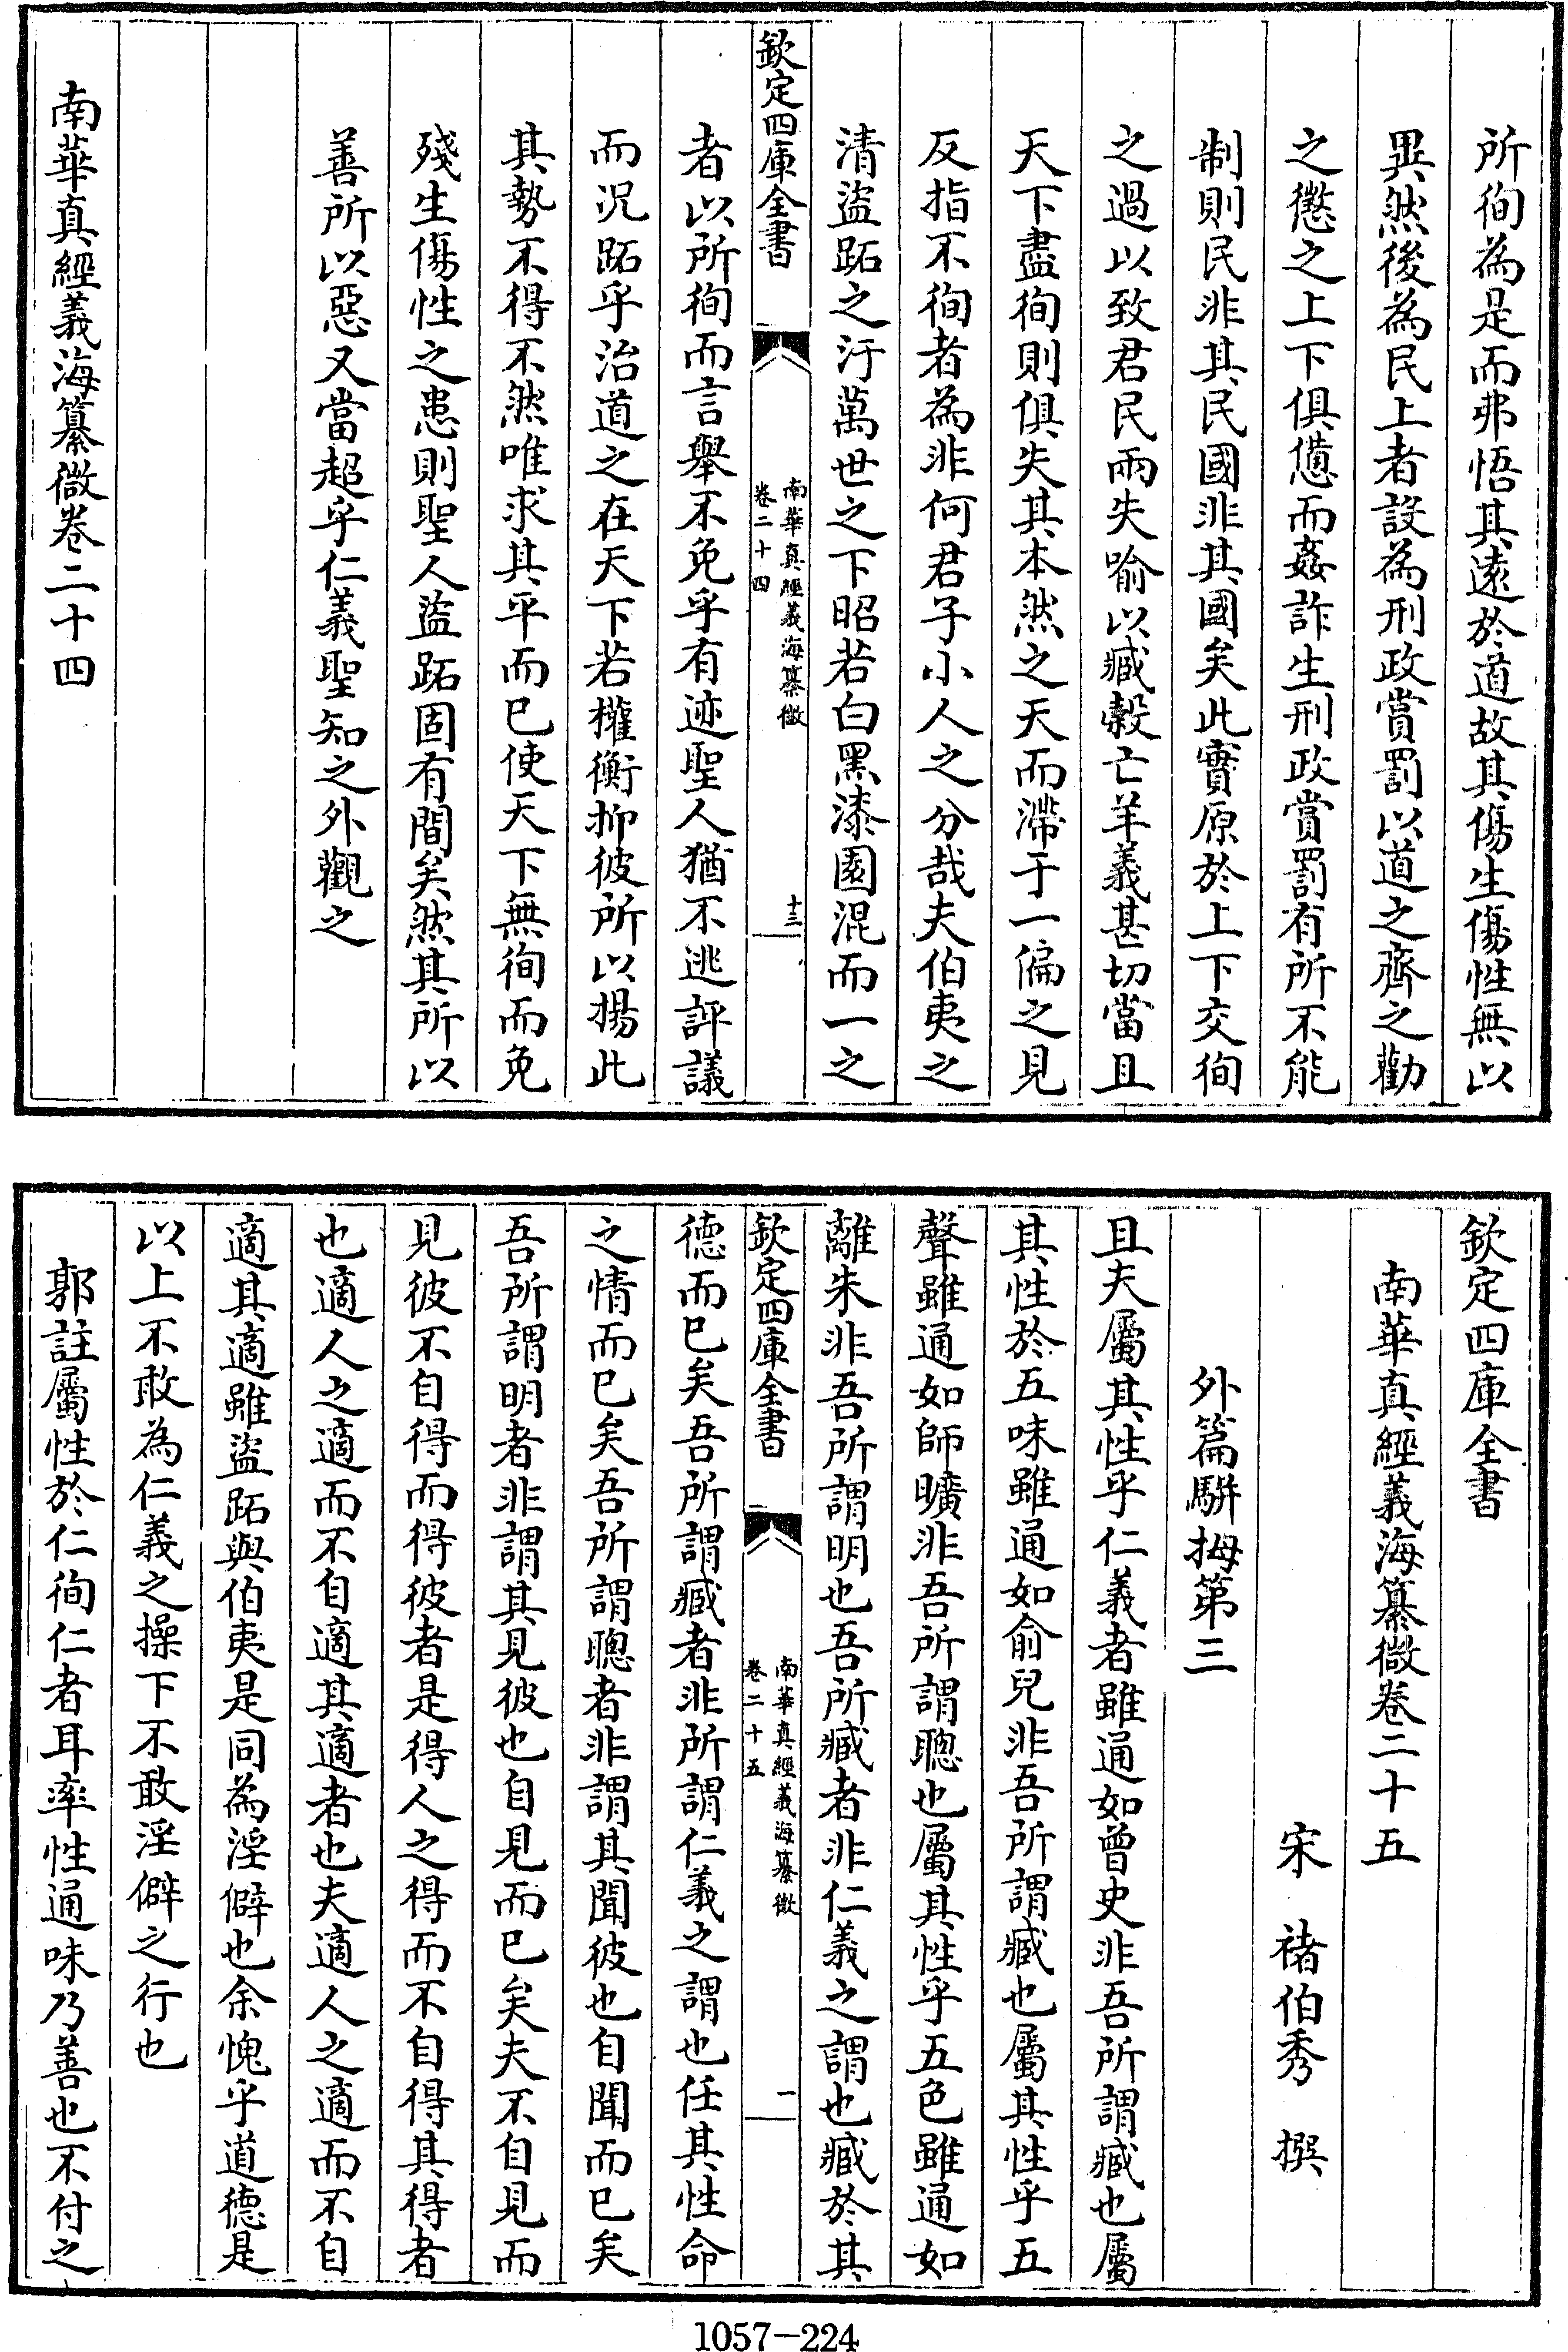 所徇為是而弗悟其遠於道故其傷生傷性無以
異然後為民上者設為刑政賞罰以道之齊之勸
之懲之上下俱僃而姦詐生刑政賞罰有所不能
制則民非其民國非其國矣此實原於上下交徇
之過以致君民兩失喻以臧穀亡羊義甚切當且
天下盡徇則俱失其本然之天而滯于一偏之見
反指不徇者為非何君子小人之分哉夫伯夷之
清盜跖之汙萬世之下昭若白黑漆園混而一之
欽定四庫全書
南華真經義海纂微
卷二十四
十三
者以所徇而言舉不免乎有迹聖人猶不逃評議
而況跖乎治道之在天下若權衡抑彼所以揚此
其勢不得不然唯求其平而已使天下無徇而免
殘生傷性之患則聖人盜跖固有間矣然其所以
善所以惡又當超乎仁義聖知之外觀之
南華真經義海纂微卷二十四
欽定四庫全書
南華真經義海纂微卷二十五
宋 褚伯秀 撰
外篇駢拇第三
且夫屬其性乎仁義者雖通如曾史非吾所謂臧也屬
其性於五味雖通如俞兒非吾所謂臧也屬其性乎五
聲雖通如師曠非吾所謂聰也屬其性乎五色雖通如
離朱非吾所謂明也吾所臧者非仁義之謂也臧於其
欽定四庫全書
南華真經義海纂微
卷二十五
一
德而已矣吾所謂臧者非所謂仁義之謂也任其性命
之情而已矣吾所謂聰者非謂其聞彼也自聞而已矣
吾所謂明者非謂其見彼也自見而已矣夫不自見而
見彼不自得而得彼者是得人之得而不自得其得者
也適人之適而不自適其適者也夫適人之適而不自
適其適雖盜跖與伯夷是同為淫僻也余愧乎道德是
以上不敢為仁義之操下不敢淫僻之行也
郭註屬性於仁徇仁者耳率性通味乃善也不付之
1057-224